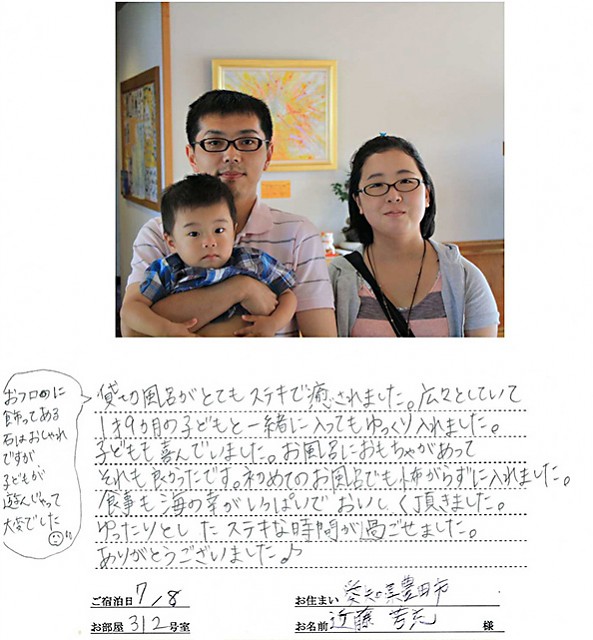 貸切風呂がとてもステキで癒されました。広々としていて
1才9ヵ月の子どもと一緒に入ってもゆっくり入れました。
子どもも喜んでいました。お風呂におもちゃがあって
それも良かったです。初めてのお風呂でも怖がらずに入れました。
食事も海の幸がいっぱいでおいしく頂きました。
ゆったりとしたステキな時間が過ごせました。
ありがとうございました♪
おフロ场に
飾ってある
石はおしゃれ
ですが
子どもが
遊んじゃって
大変でした
ご宿泊日 7/8
お住まい 愛知県豊田市
お部屋 312号室
お名前 近藤 芳充 様